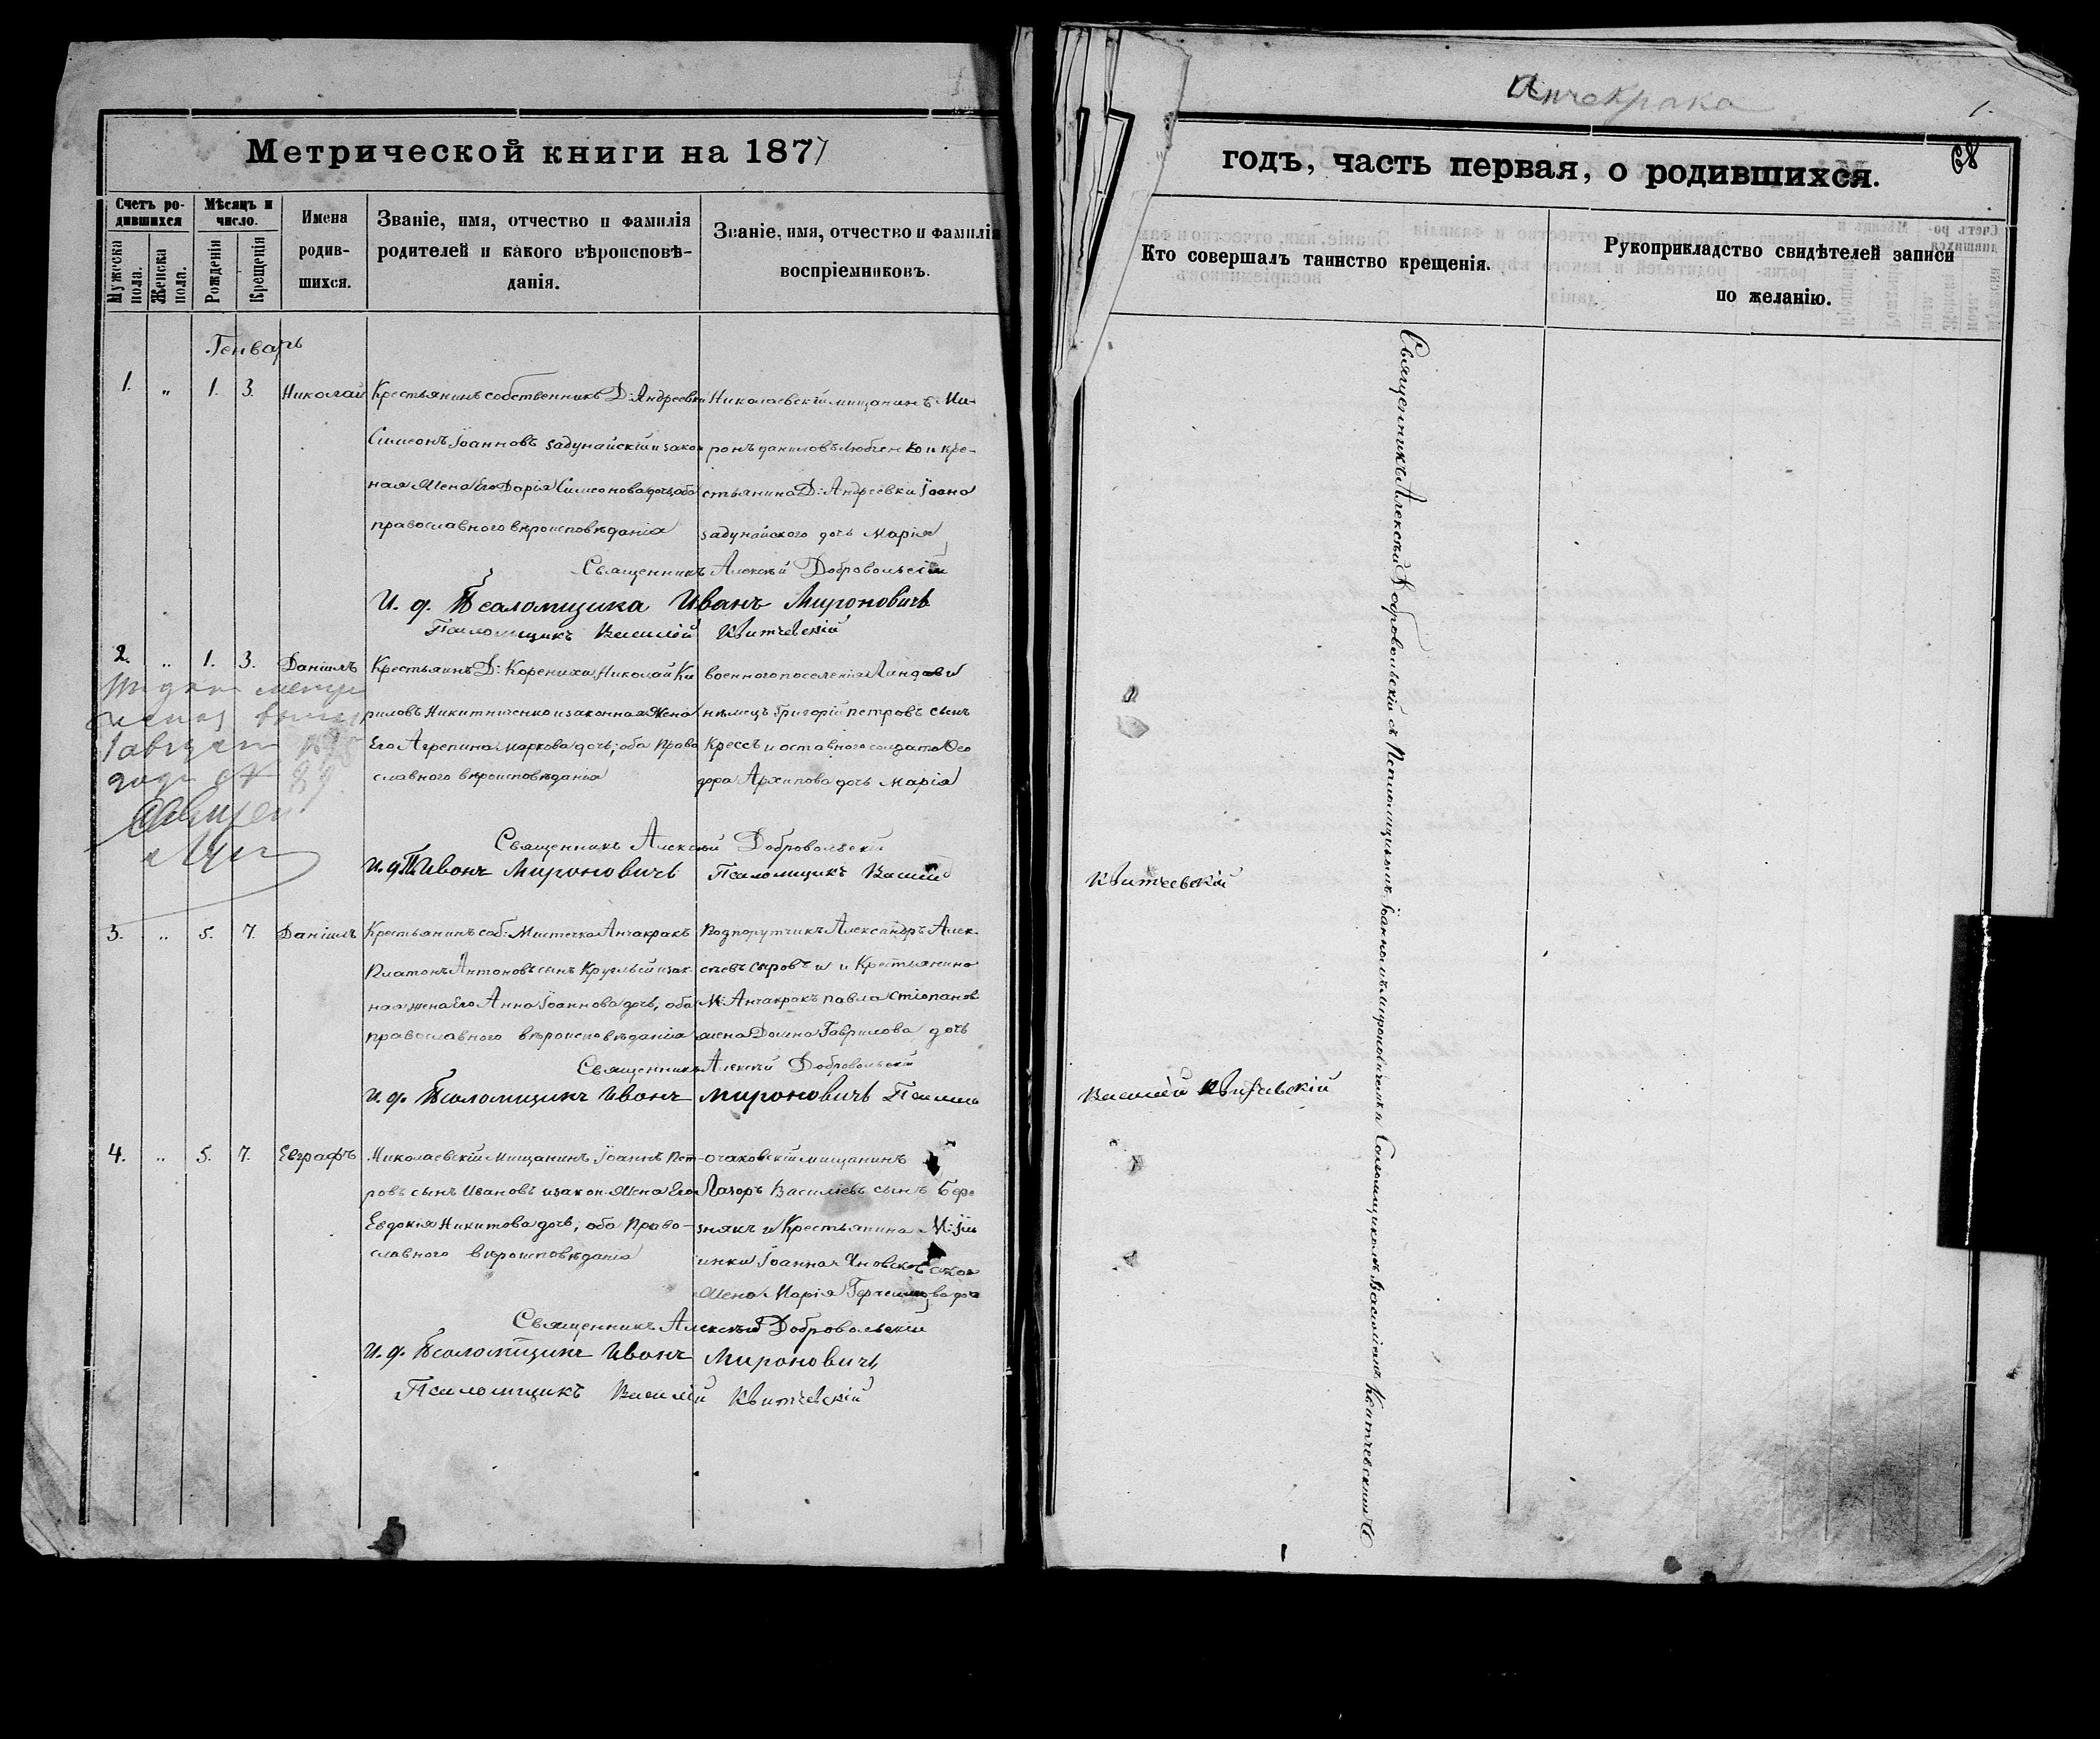 Анчекрака
1.
68
Метрической книги на 1877
годъ, часть первая, о родившихся.
Счетъ ро-
дившихся
Мужеска
пола.
Женска
пола.
Мѣсяцъ и
число.
Рожденія
Крещенія
Имена
родив-
шихся.
Званіе, имя, отчество и фамилія
родителей и какого вѣроисповѣ-
данія.
Званіе, имя, отчество и фамилія
воспріемниковъ.
Кто совершалъ таинство крещенія.
Рукоприкладство свидѣтелей записи
по желанію.
Генварь
1. „ 1. 3. Николай
Крестьянинъ собственникъ Д: Андреевки
Симеонъ Іоанновъ Задунайскій и закон
ная Жена Его Дарія Симеонова дочь, оба
православного вѣроисповѣданія
Николаевскій мищанинъ Ми-
ронъ даниловъ Любченко и кре-
стьянина Д: Андреевки Іоана
Задунайского дочь Марія
Священникъ Алексѣй Добровольскій
И. д. Псаломщика Иванъ Мироновичъ
Псаломщикъ Василій Квитчевскій
2. „ 1. 3. Даніилъ
Крестьянинъ Д: Коренихи Николай Ки
риловъ Никитниченко и законная Жена
Его Агрепина Маркова дочь; оба Право
славного вѣроисповѣданія
военного поселенія Ландови
нѣмецъ Григорій петровъ сынъ
Кресъ и оставного солдата Ѳео
дора Архипова дочь Марія
Священникъ Алексѣй Добровольскій
И. д. П. Иванъ Мироновичъ Псаломщикъ Василій
Квитчевскій
3. „ 5. 7. Даніилъ
Крестьянинъ соб: Мистечка Анчакракъ
Платонъ Антоновъ сынъ Круглый и зак-
ная жена Его Анна Іоаннова дочь, оба
православного вѣроисповѣданія
Подпорутчикъ Александръ Алек-
сѣевъ Сыровъ и Крестьянина
М: Анчакракъ павла Стіопанов
жена Домна Гаврилова дочь
Священникъ Алексѣй Добровольскій
И. д. Псаломщикъ Иванъ Мироновичъ Псалом
Василій Квитчевскій
4. „ 5. 7. Евграфъ
Николаевскій Мищанинъ Іоаннъ Пет-
ровъ сынъ Ивановъ и закон. Жена Его
Евдокія Никитова дочь; оба Право-
славного вѣроисповѣданія
очаковскій мищанинъ
Лазоръ Василіевъ сынъ Бере
знякъ и Крестьянина М:
Жена Марія
Священникъ Алексѣй Добровольскій
И. д. Псаломщикъ Иванъ Мироновичъ
Псаломщикъ Василій Квитчевскій
Священникъ Алексѣй Добровольскій съ Псаломщикомъ Іоанномъ Мироновичемъ и Псаломщикомъ Василіемъ Квитчевскимъ